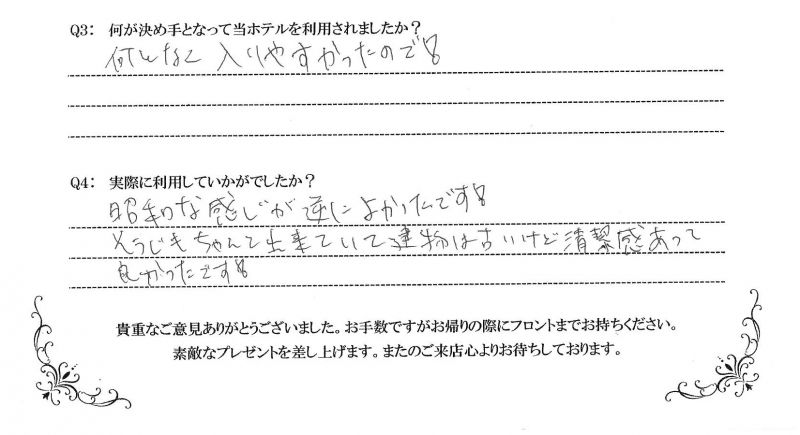 Q3: 何が決め手となって当ホテルを利用されましたか？
何となく入りやすかったので!
Q4: 実際に利用していかがでしたか？
昭和な感じが逆によかったです!
そうじもちゃんと出来ていて建物は古いけど清潔感あって
良かったです!
貴重なご意見ありがとうございました。お手数ですがお帰りの際にフロントまでお持ちください。
素敵なプレゼントを差し上げます。またのご来店心よりお待ちしております。